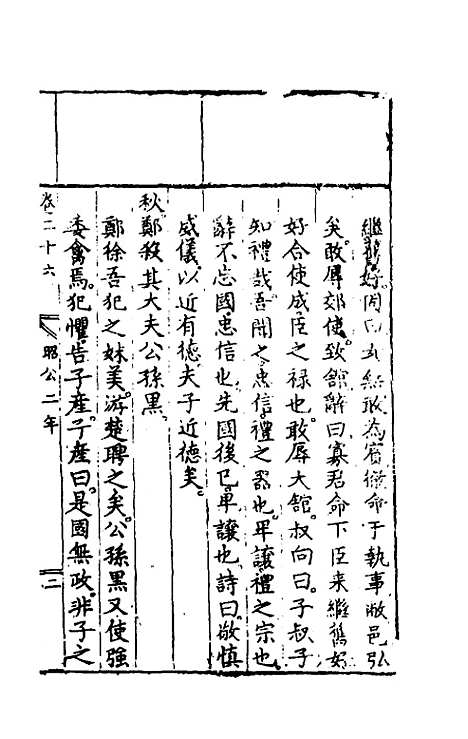 繼舊好固曰女無敢為賓徹命于執事敝邑弘
矣敢辱郊使致館辭曰寡君命下臣来繼舊好
好合使成臣之禄也敢辱大館叔向曰子叔子
知禮哉吾聞之忠信禮之器也卑讓禮之宗也
辭不忘國忠信也先國後己卑讓也詩曰敬慎
威儀以近有德夫子近德矣
秋鄭殺其大夫公孫黑
鄭徐吾犯之妹美游楚聘之矣公孫黑又使強
委禽焉犯懼告子産子産曰是國無政非子之
卷二十六 昭公二年 二